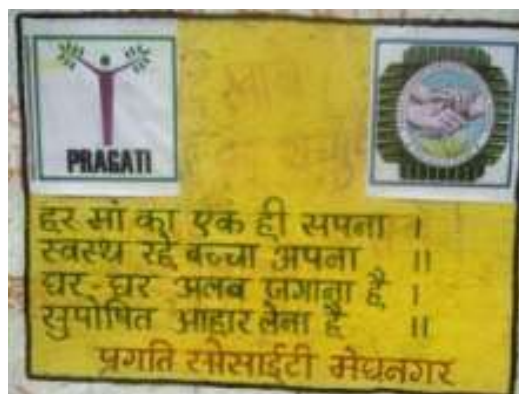 PRAGATI
हर मां का एक ही सपना ।
स्वस्थ रहे बच्चा अपना ॥
घर-घर अलख जगाना है ।
सुपोषित आहार लेना है ॥
प्रगति सोसाईटी मेघनगर